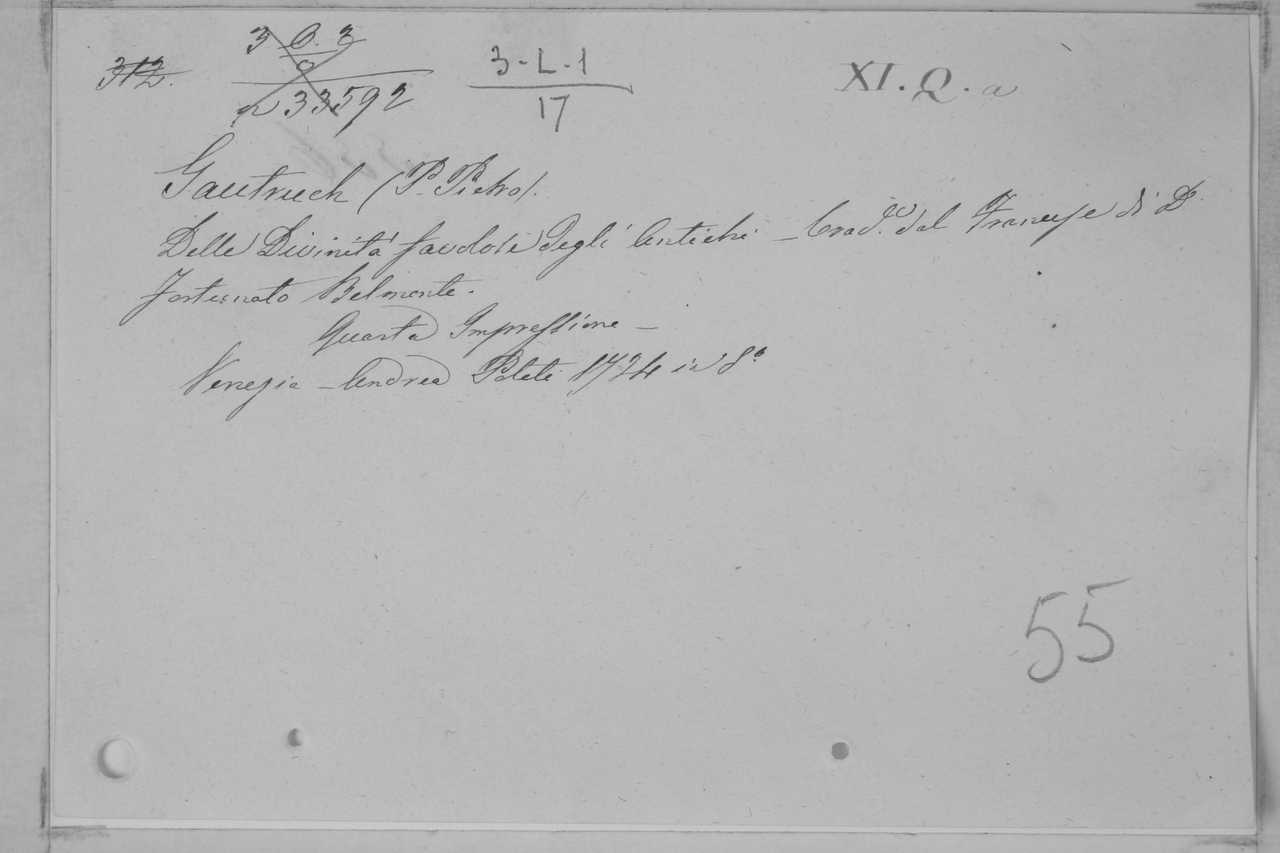 312.
3 O. 3
n 33592
3-L-1
17
XI. Q. a
Gautruch (P. Pietro).
Delle Divinità favolose degli Antichi – Trad.to dal Francese di D.
Fortunato Belmonte.
Quarta Impressione –
Venezia – Andrea Poleti 1724 in 8°
55